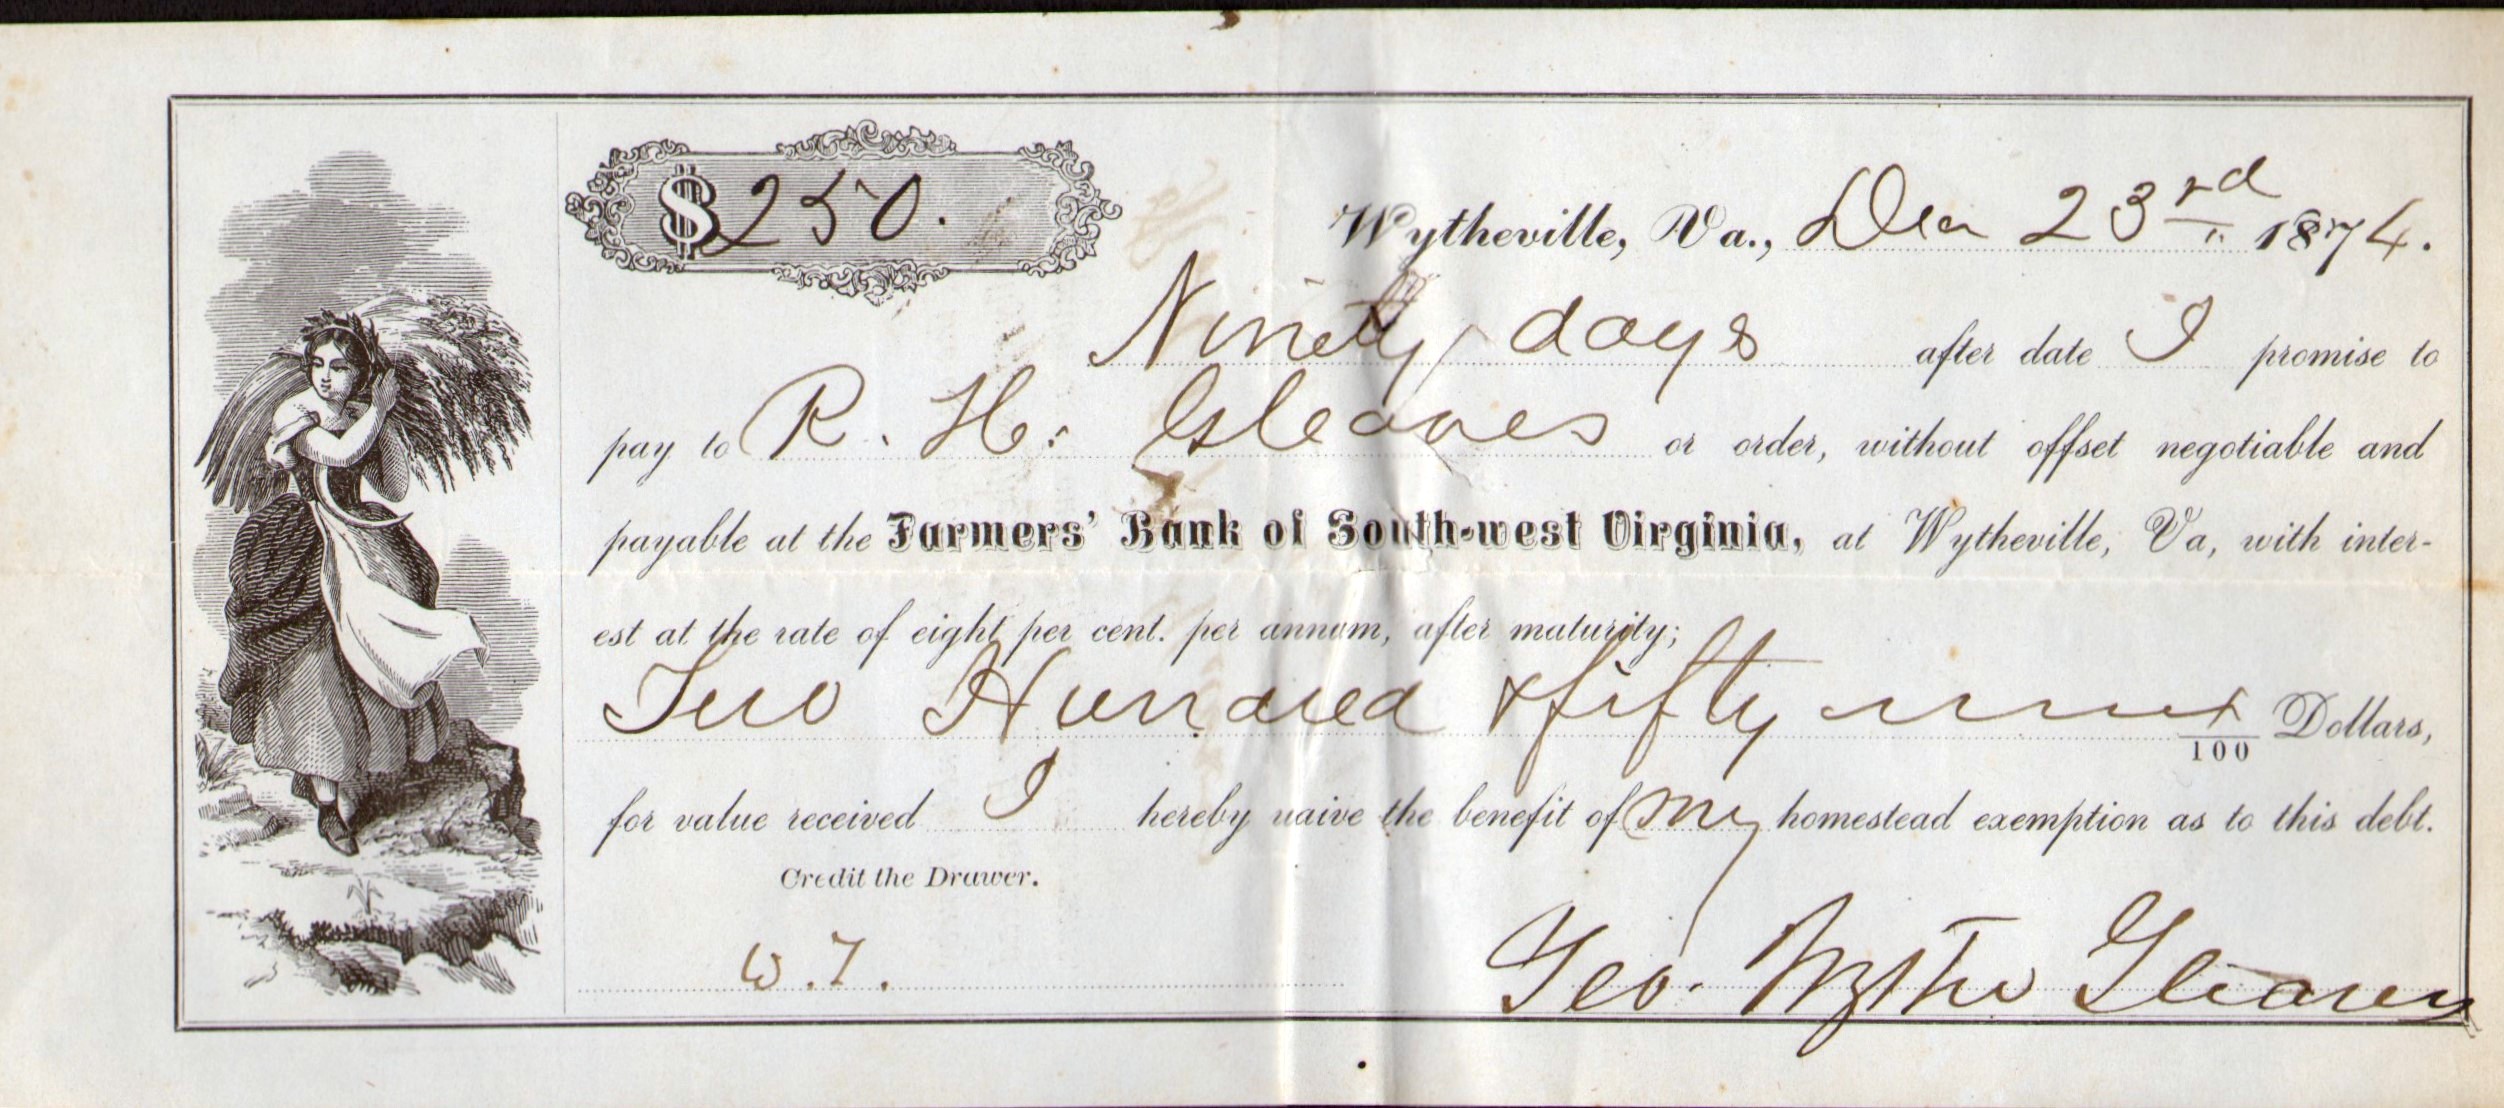 $250.
Wytheville, Va., Dec 23rd 1874.
Ninety days after date I promise to
pay to R. H. Gleaves or order, without offset negotiable and
payable at the Farmers' Bank of South-west Virginia, at Wytheville, Va, with inter-
est at the rate of eight per cent. per annum, after maturity;
Two Hundred & fifty x/100 Dollars,
for value received I hereby waive the benefit of my homestead exemption as to this debt.
Credit the Drawer.
W. T.
Geo. Wythe Gleaves